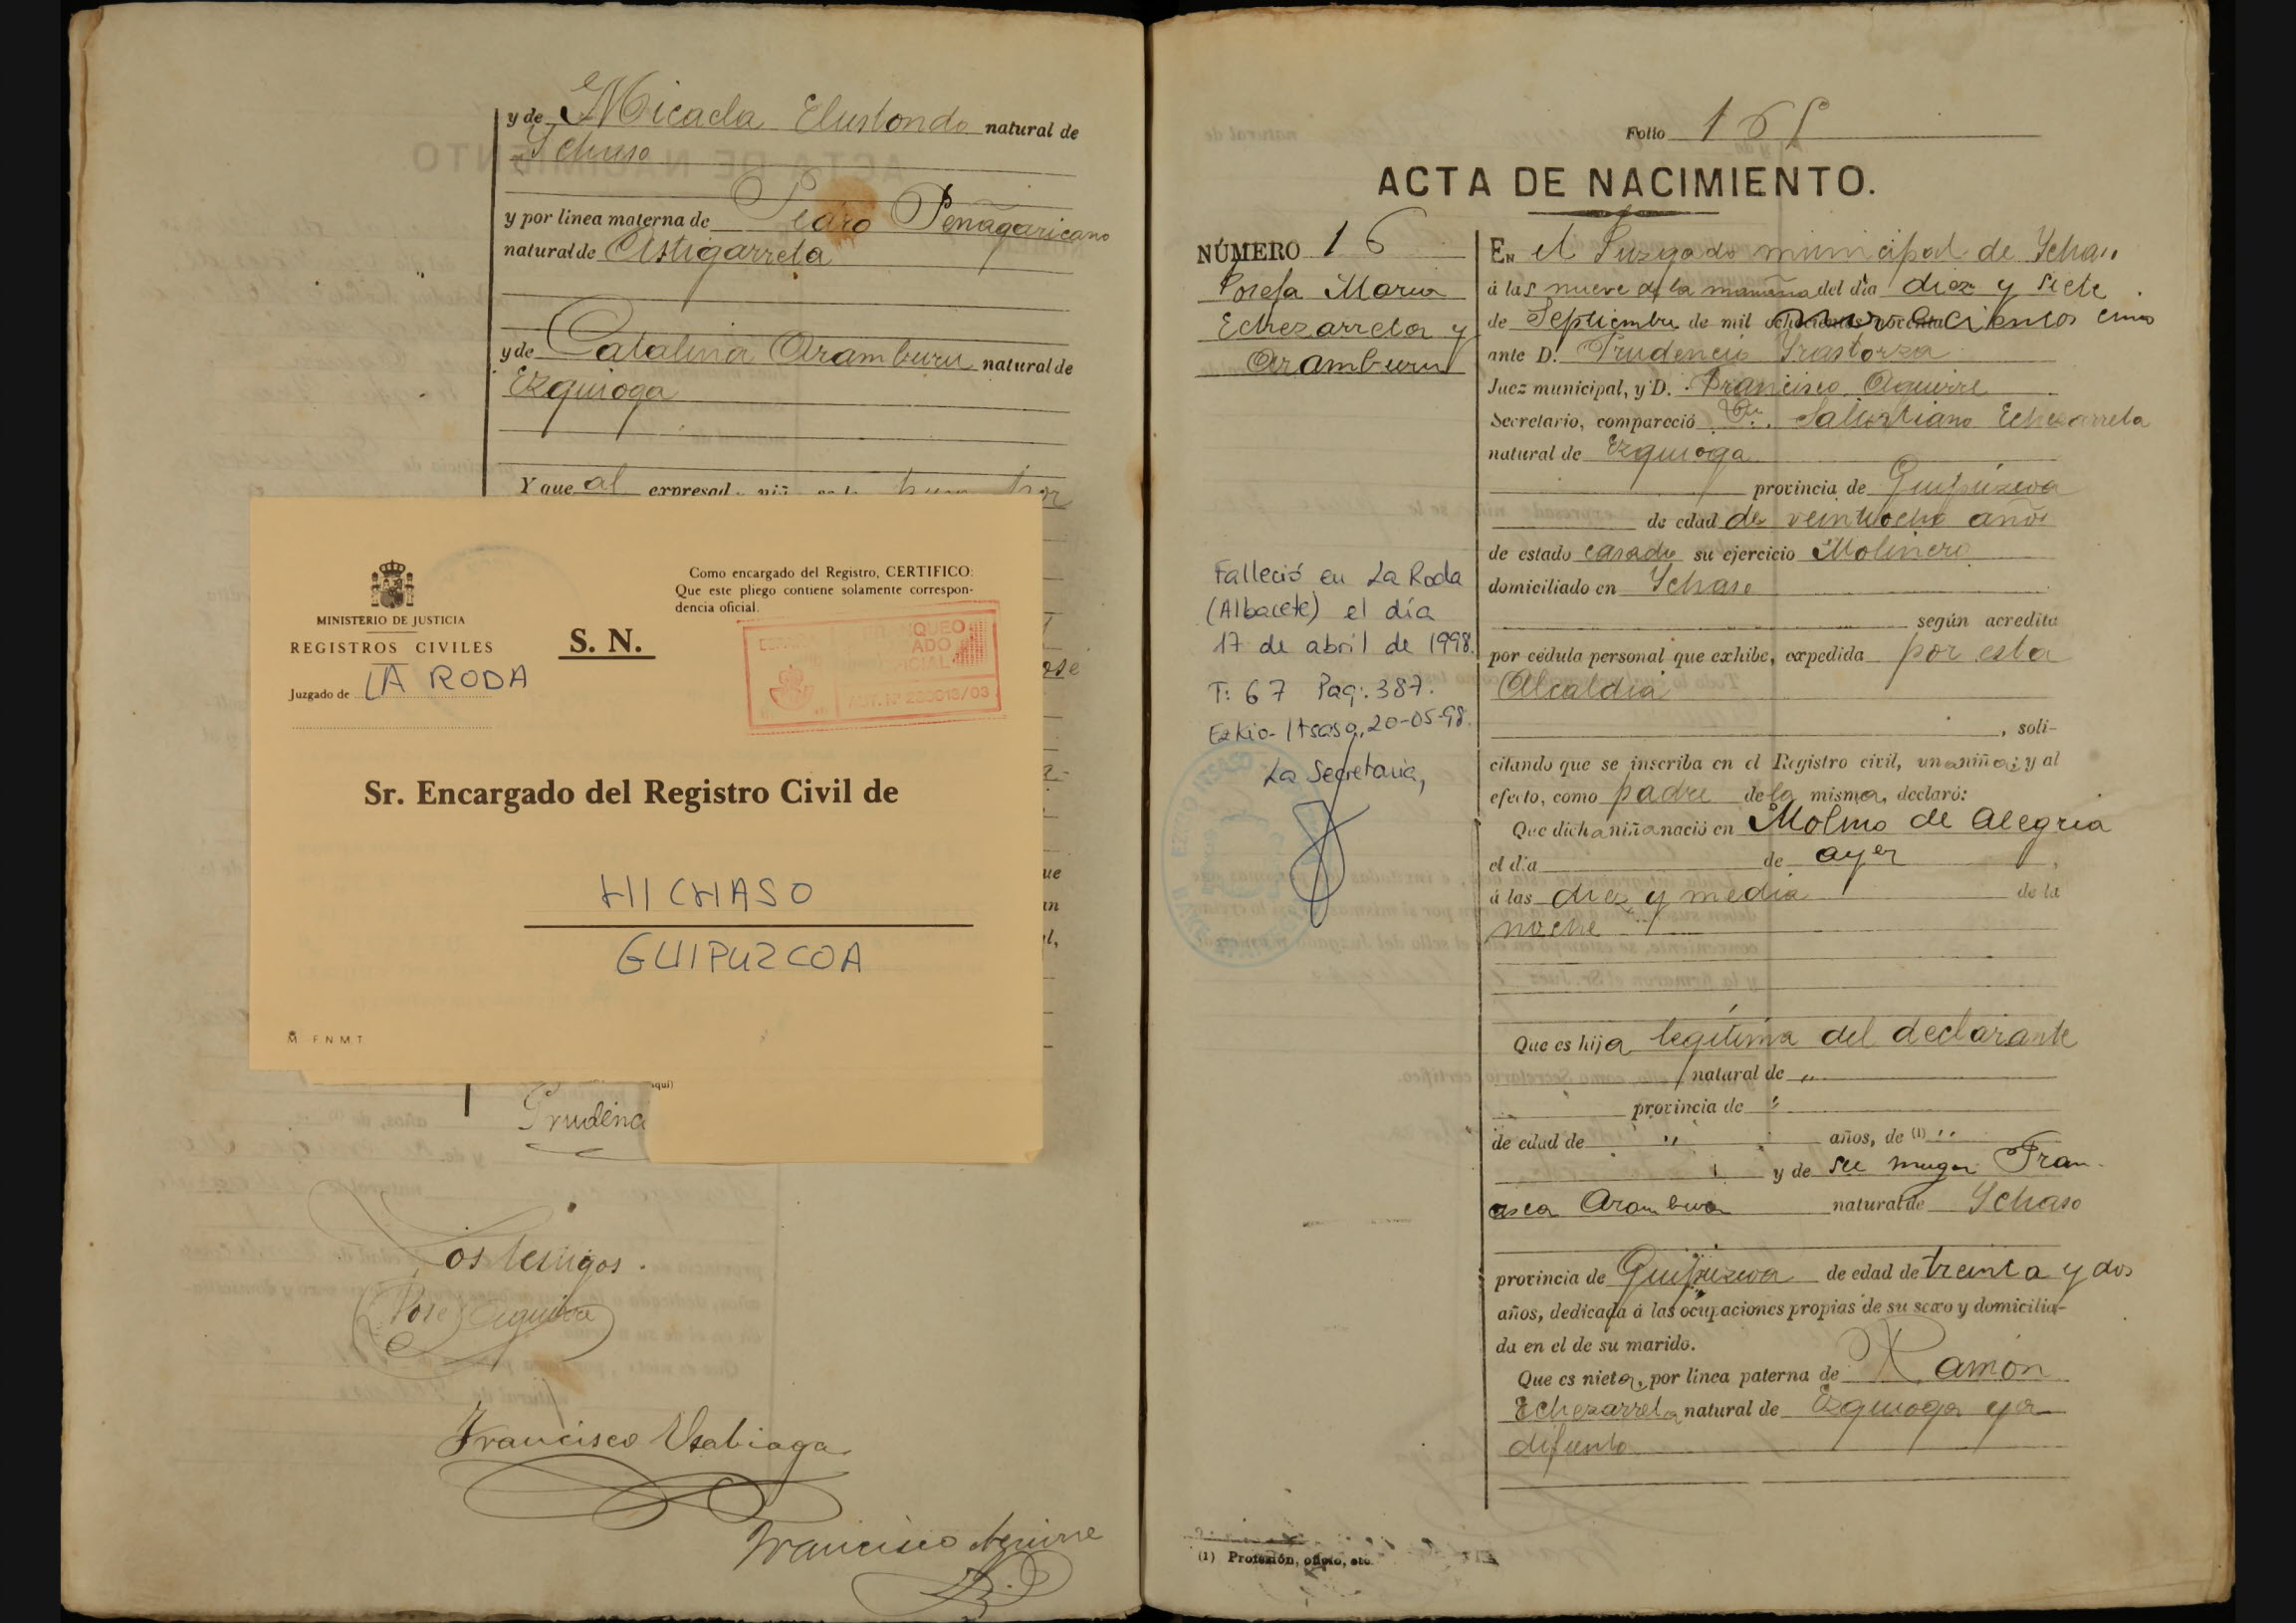 y de Micaela Elustondo natural de
Ichaso
y por linea materna de Pedro Peñagaricano
natural de Astigarreta
y de Catalina Aramburu natural de
Ezquioga
Y que al expresad
MINISTERIO DE JUSTICIA
REGISTROS CIVILES
Juzgado de LA RODA
S. N.
Como encargado del Registro, CERTIFICO:
Que este pliego contiene solamente correspon-
dencia oficial.
FRANQUEO
OFICIAL
Sr. Encargado del Registro Civil de
HICHASO
GUIPUZCOA
F N M T
aquí)
Prudenc
Los testigos.
Jose Aguirre
Francisco Usabiaga
Francisco Aguirre
Folio 165
ACTA DE NACIMIENTO.
NÚMERO 16
Josefa Maria
Echezarreta y
Aramburu
Falleció en La Roda
(Albacete) el día
17 de abril de 1998.
T: 67 Pag: 387.
Ezkio-Itsaso, 20-05-98.
La Secretaria,
En el Juzgado municipal de Ichaso
á las nueve de la mañana del dia diez y siete
de Septiembre de mil ochocientos novecientos cinco
ante D. Prudencio Irastorza
Juez municipal, y D. Francisco Aguirre
Secretario, compareció D. Salustiano Echezarreta
natural de Ezquioga
provincia de Guipúzcoa
de edad de veintiocho años
de estado casado su ejercicio Molinero
domiciliado en Ichaso
según acredita
por cédula personal que exhibe, expedida por esta
Alcaldia
, soli-
citando que se inscriba en el Registro civil, una niña; y al
efecto, como padre de la misma, declaró:
Que dicha niña nació en Molino de Alegria
el dia de ayer
á las diez y media de la
noche
Que es hija legitima del declarante
natural de "
provincia de "
de edad de " años, de (1) "
y de su muger Fran-
cisca Aramburu natural de Ichaso
provincia de Guipuzcoa de edad de treinta y dos
años, dedicada á las ocupaciones propias de su sexo y domicilia-
da en el de su marido.
Que es nieta, por linea paterna de Ramón
Echezarreta natural de Ezquioga ya
difunto
(1) Profesión, oficio, etc.